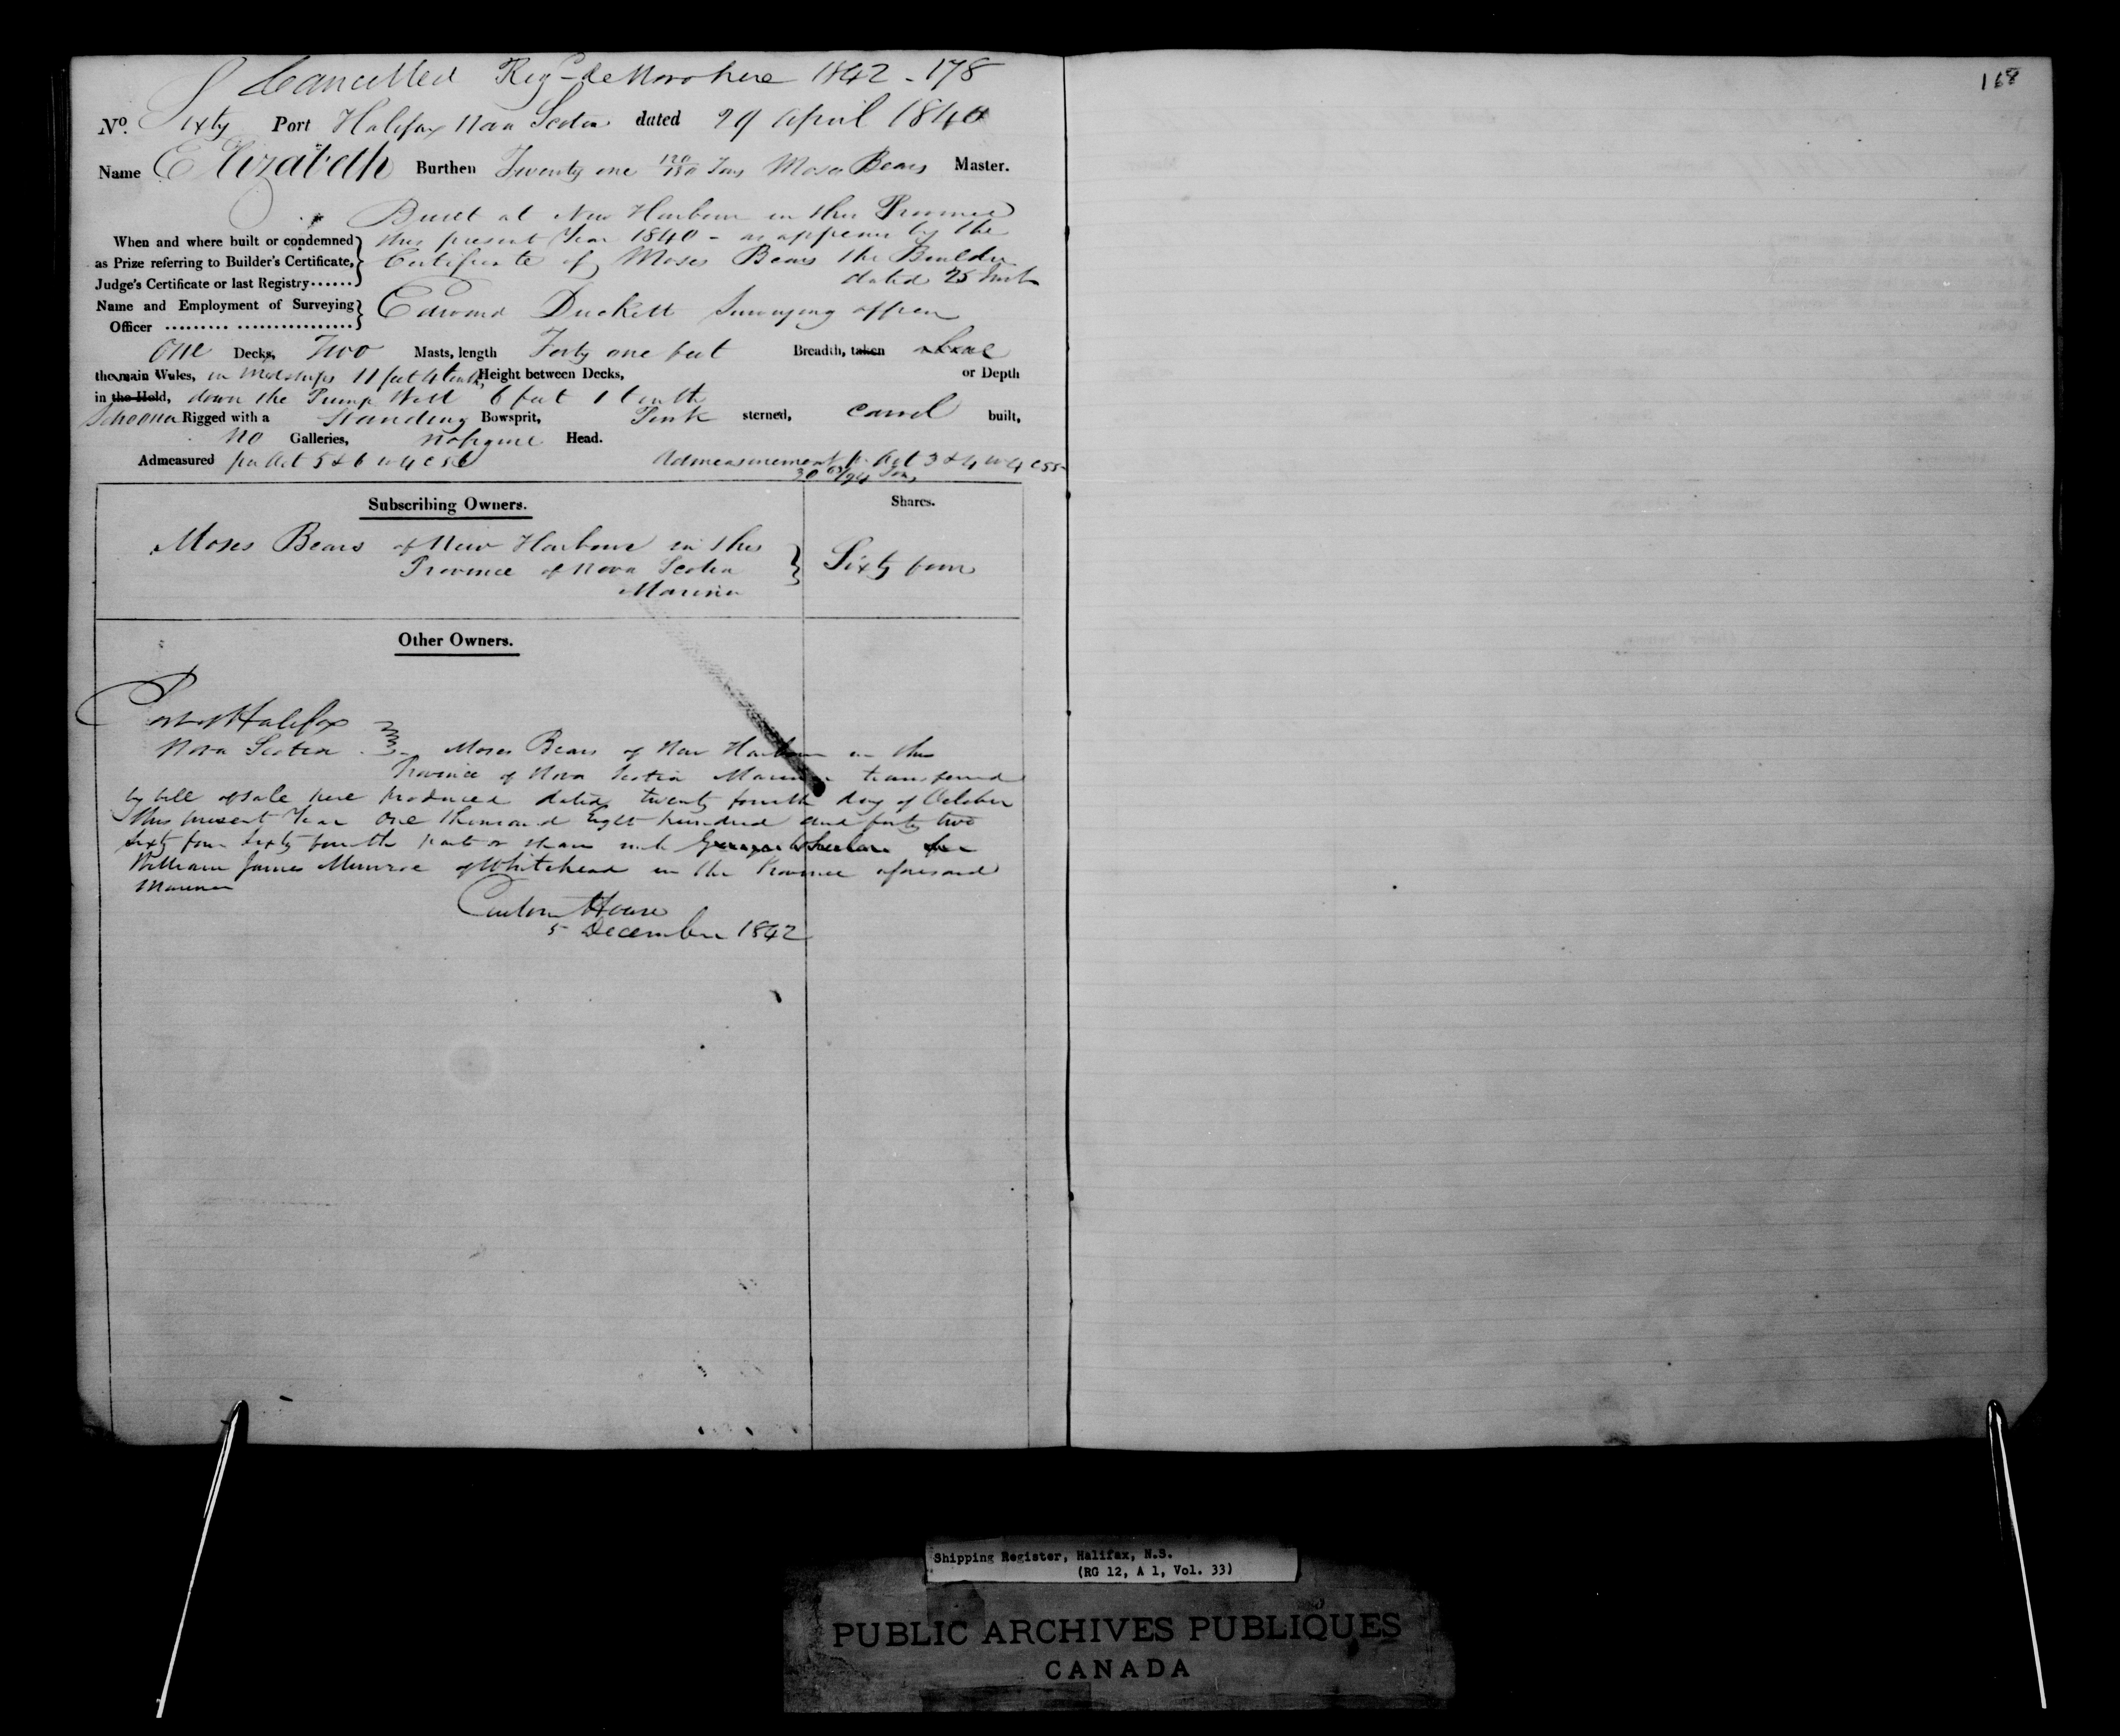 Cancelled Reg.d de Novo here 1842 - 178
168
No. Sixty Port Halifax Nova Scotia dated 29 April 1840
Name Elizabeth Burthen Twenty one 120/130 Tons Moses Bears Master.
Built at New Harbour in this Province
this present Year 1840 - as appears by the
When and where built or condemned
as Prize referring to Builder's Certificate, Certificate of Moses Bears the Builder
Judge's Certificate or last Registry...... dated 25 Inst
Name and Employment of Surveying Edward Duckett Surveying officer
Officer ......... ................
One Decks, Two Masts, length Forty one feet Breadth, taken above
the main Wales, in Midships 11 feet 4 tenths, Height between Decks, or Depth
in the Hold, down the Pump Well 6 feet 1 tenth
Schooner Rigged with a Standing Bowsprit, Pink sterned, Carvel built,
No Galleries, no figure Head.
Admeasured per Act 5 & 6 W 4 C 56 Admeasurement pr Act 3 & 4 W 4 C 55
30 /94 Tons
Subscribing Owners. Shares.
Moses Bears of New Harbour in this
Province of Nova Scotia Sixty four
Mariner
Other Owners.
Port of Halifax
Nova Scotia Moses Bears of New Harbour in this
Province of Nova Scotia Mariner transferred
by bill of sale here produced dated twenty fourth day of October
this present Year One thousand Eight hundred and forty two
Sixty four Sixty fourth parts or shares
William James Munroe of Whitehead in the Province aforesaid
Mariner
Custom House
5 December 1842
Shipping Register, Halifax, N.S.
(RG 12, A 1, Vol. 33)
PUBLIC ARCHIVES PUBLIQUES
CANADA